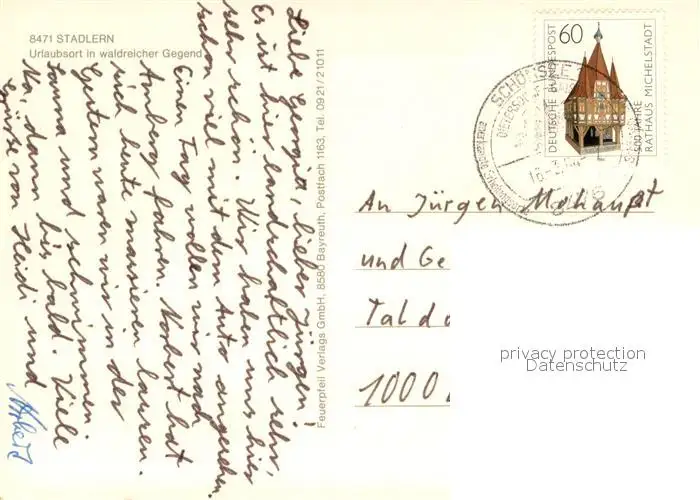 8471 STADLERN
Urlaubsort in waldreicher Gegend
Liebe Georgitt, lieber Jürgen!
Es ist hier landschaftlich sehr,
sehr schön. Wir haben uns hier
schon viel mit dem Auto angesehen.
Einen Tag wollen wir nach
Amberg fahren. Norbert hat
sich heute massieren lassen.
Gestern waren wir in der
Sauna und schwimmen.
Na, dann bis bald. Viele
Grüße von Heidi und
Norbert
Feuerpfeil Verlags GmbH, 8580 Bayreuth, Postfach 1163, Tel. 0921/21011
60
DEUTSCHE BUNDESPOST
500 JAHRE
RATHAUS MICHELSTADT
SCHÖNSEE
An Jürgen Mohaupt
und Ge
Taldo
1000
privacy protection
Datenschutz